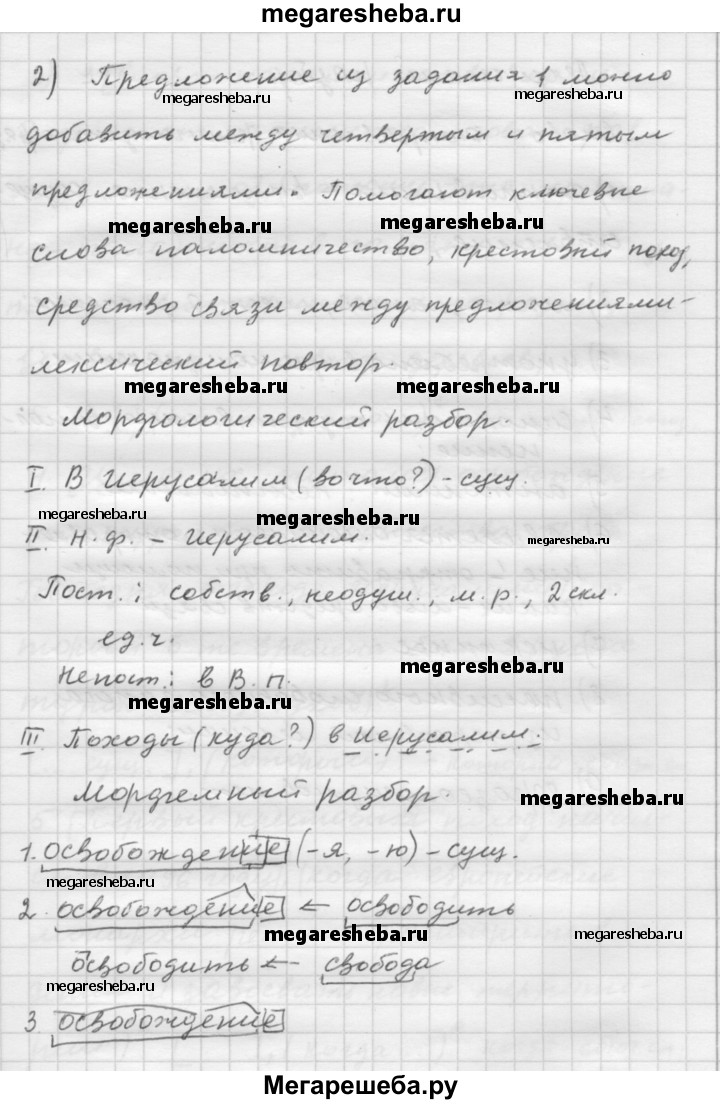 megaresheba.ru
2) Предложение из задания 1 можно
megaresheba.ru megaresheba.ru
добавить между четвертым и пятым
предложениями. Помогают ключевые
megaresheba.ru megaresheba.ru
слова паломничество, крестовый поход,
средство связи между предложениями -
лексический повтор.
megaresheba.ru megaresheba.ru
Морфологический разбор.
I. В Иерусалим (во что?) - сущ.
megaresheba.ru megaresheba.ru
II. Н.ф. - Иерусалим. megaresheba.ru
Пост.: собств., неодуш., м.р., 2 скл.
ед.ч.
Непост.: в В.п. megaresheba.ru
megaresheba.ru
III. Походы (куда?) в Иерусалим.
Морфемный разбор. megaresheba.ru
1. освобождение (-я, -ю) - сущ.
megaresheba.ru
2. освобождение ← освободить
megaresheba.ru megaresheba.ru
освободить ← свобода
3. освобождение
Мегарешеба.ру